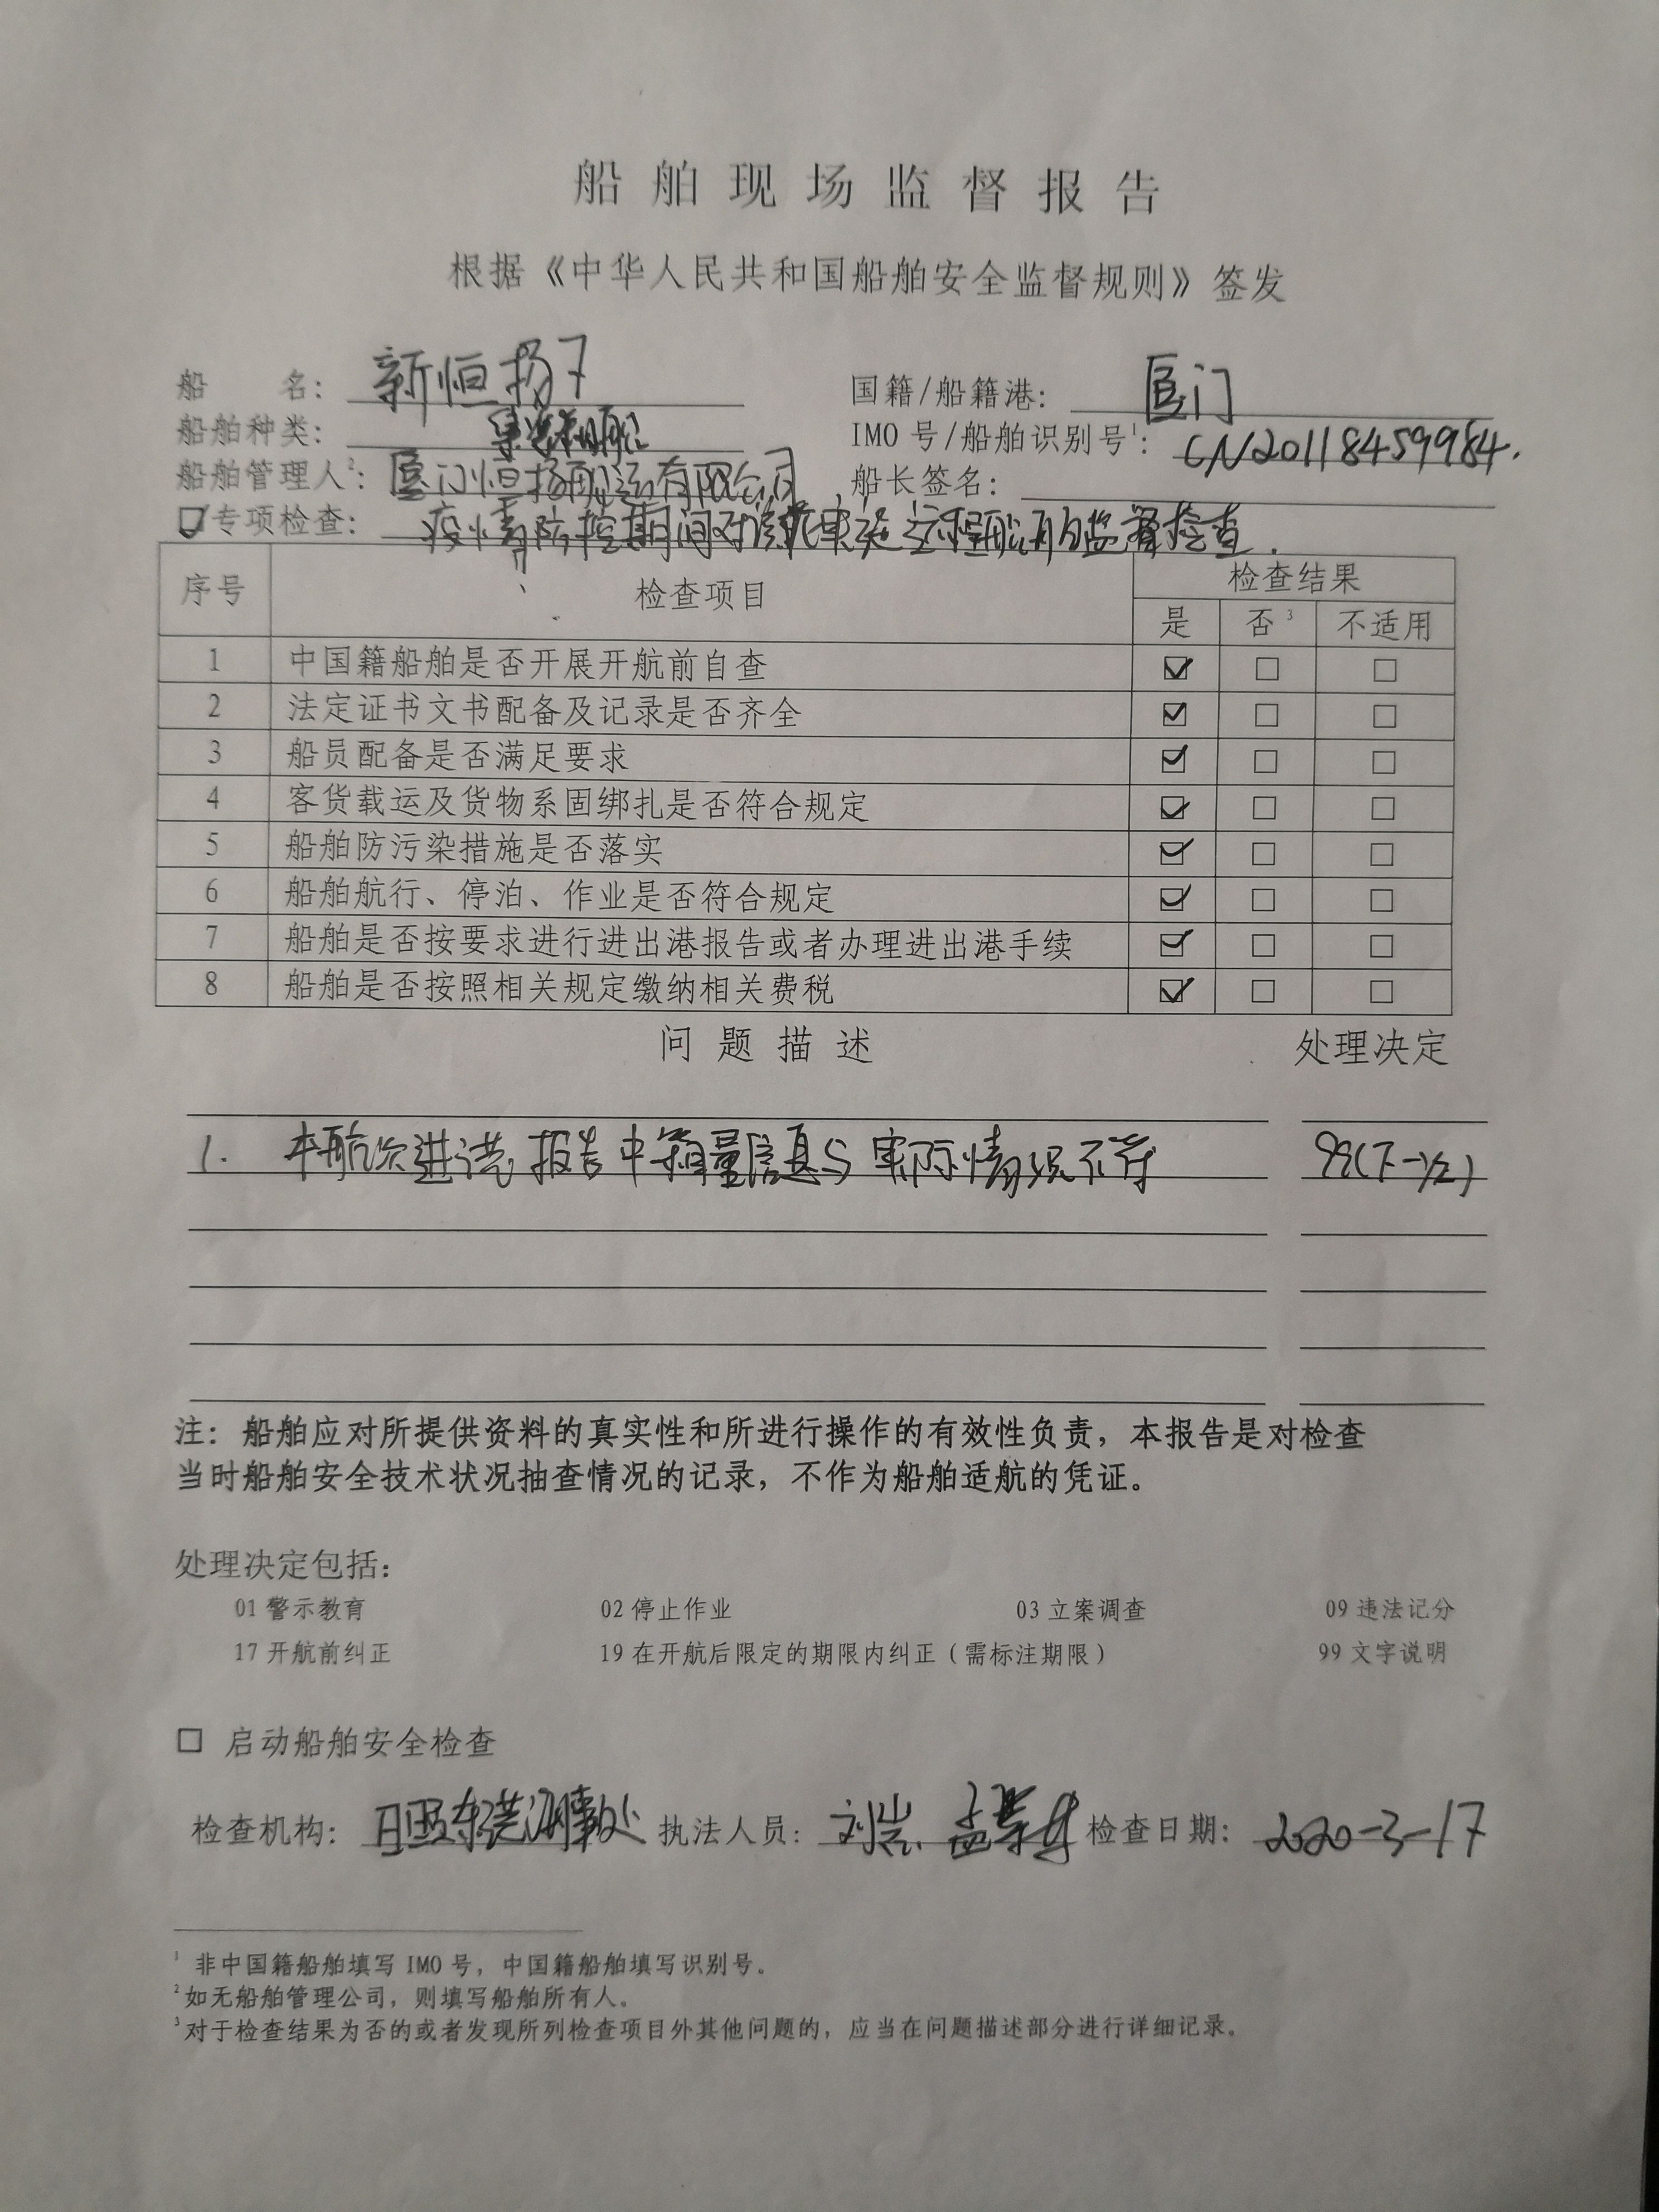 船舶现场监督报告
根据《中华人民共和国船舶安全监督规则》签发
船 名: 新恒扬7 国籍/船籍港: 厦门
船舶种类: 集装箱船 IMO 号/船舶识别号1: CN20118459984.
船舶管理人2: 厦门恒扬船运有限公司 船长签名:
☑专项检查: 疫情防控期间对该轮实施远程船舶监督检查.
序号 检查项目 检查结果
是 否3 不适用
1 中国籍船舶是否开展开航前自查 ☑ □ □
2 法定证书文书配备及记录是否齐全 ☑ □ □
3 船员配备是否满足要求 ☑ □ □
4 客货载运及货物系固绑扎是否符合规定 ☑ □ □
5 船舶防污染措施是否落实 ☑ □ □
6 船舶航行、停泊、作业是否符合规定 ☑ □ □
7 船舶是否按要求进行进出港报告或者办理进出港手续 ☑ □ □
8 船舶是否按照相关规定缴纳相关费税 ☑ □ □
问题描述 处理决定
1. 本航次进港报告中箱量信息与实际情况不符 99(下一次)
注: 船舶应对所提供资料的真实性和所进行操作的有效性负责, 本报告是对检查
当时船舶安全技术状况抽查情况的记录, 不作为船舶适航的凭证。
处理决定包括:
01 警示教育 02 停止作业 03 立案调查 09 违法记分
17 开航前纠正 19 在开航后限定的期限内纠正(需标注期限) 99 文字说明
□ 启动船舶安全检查
检查机构: 日照东港海事处 执法人员: 刘岩、孟 检查日期: 2020-3-17
1 非中国籍船舶填写 IMO 号, 中国籍船舶填写识别号。
2 如无船舶管理公司, 则填写船舶所有人。
3 对于检查结果为否的或者发现所列检查项目外其他问题的, 应当在问题描述部分进行详细记录。